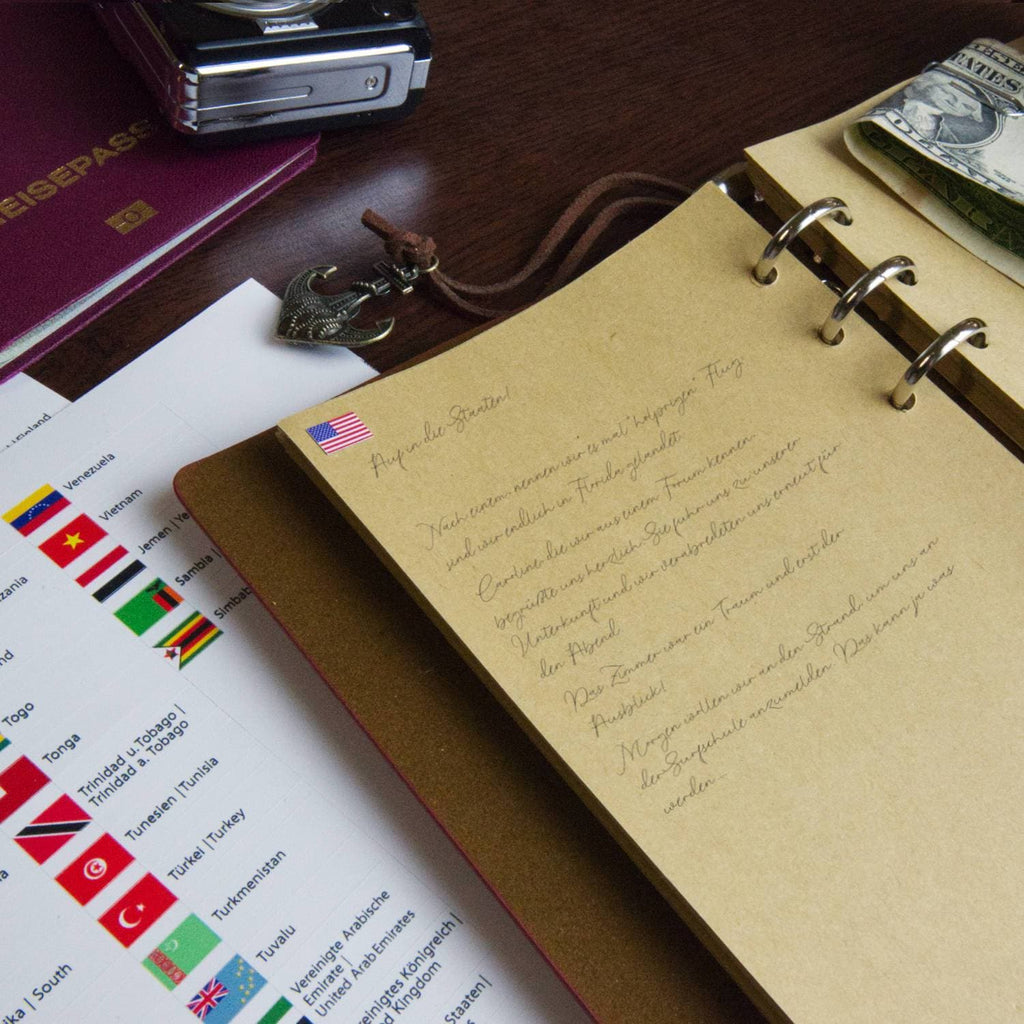 REISEPASS
ATES
Venezuela
Vietnam
Jemen | Ye
Sambia
Simbab
zania
Togo
Tonga
Trinidad u. Tobago |
Trinidad a. Tobago
Tunesien | Tunisia
Türkei | Turkey
Turkmenistan
Tuvalu
Vereinigte Arabische
Emirate |
United Arab Emirates
einigtes Königreich |
d Kingdom
Staaten |
ika | South
Auf in die Staaten!
Nach einem nennen wir es mal "holprigen" Flug
sind wir endlich in Florida glandet.
Caroline die wir aus einem Forum kennen
begrüßte uns herzlich Sie fuhr uns zu unserer
Unterkunft und wir verabredeten uns erneut für
den Abend
Das Zimmer war ein Traum und erst der
Ausblick!
Morgen wollen wir an den Strand, um uns an
der Surfschule anzumelden. Das kann ja was
werden...